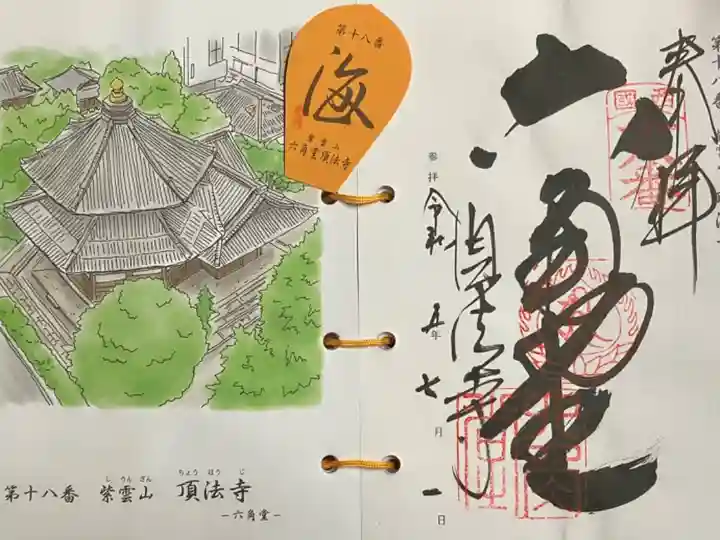 第十八番
海
紫雲山
六角堂頂法寺
第十八番 紫雲山 頂法寺
し うん ざん ちょう ほう じ
−六角堂−
奉拝
六角堂
頂法寺
参拝 令和 五年 七月 一日